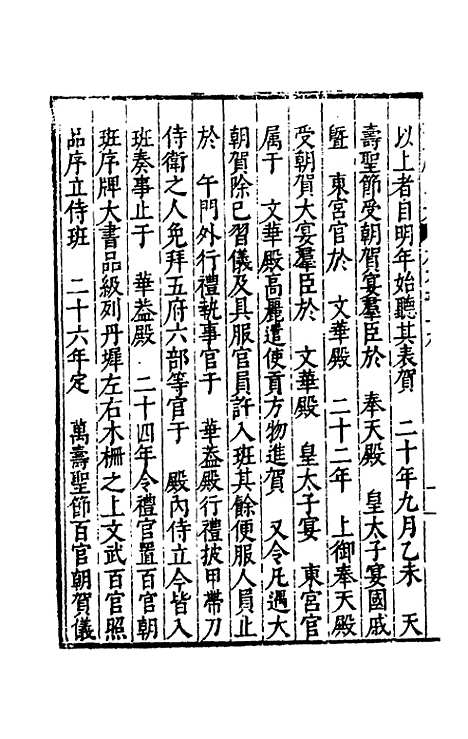 以上者自明年始聽其表賀　二十年九月乙未　天
壽聖節受朝賀宴羣臣於　奉天殿　皇太子宴國戚
暨　東宮官於　文華殿　二十二年　上御奉天殿
受朝賀大宴羣臣於　文華殿　皇太子宴　東宮官
属于　文華殿高麗遣使貢方物進賀　又令凡遇大
朝賀除已習儀及具服官員許入班其餘便服人員止
於　午門外行禮執事官于　華益殿行禮披甲帶刀
侍衛之人免拜五府六部等官于　殿內侍立今皆入
班奏事止于　華葢殿　二十四年令禮官置百官朝
班序牌大書品級列丹墀左右木柵之上文武百官照
品序立侍班　二十六年定　萬壽聖節百官朝賀儀